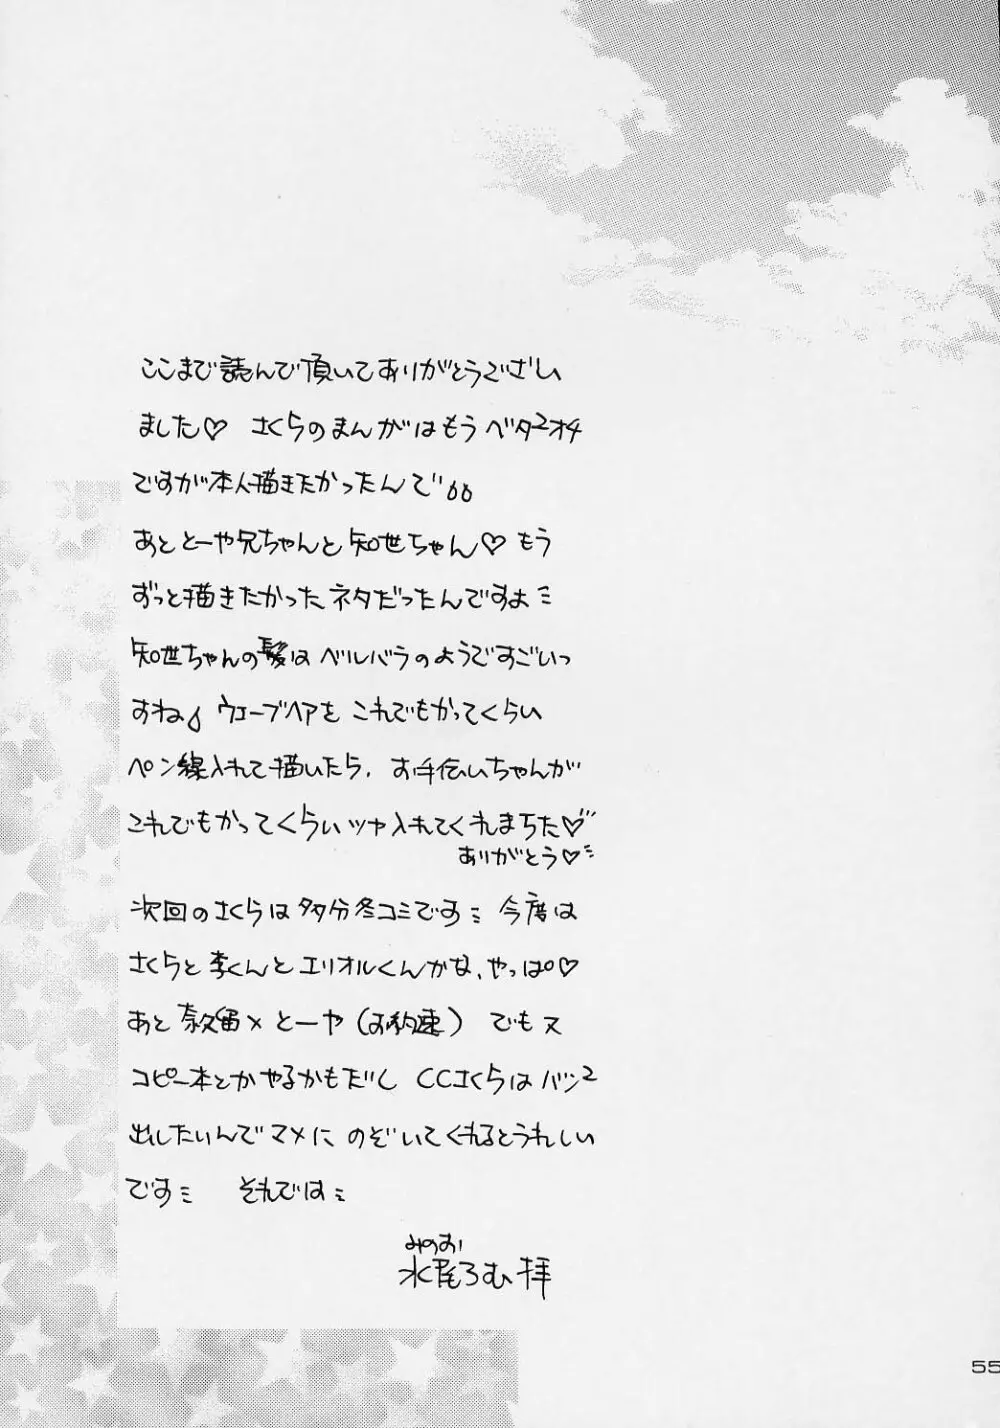 ここまで読んで頂いてありがとうござい
ました♡ さくらのまんがはもう ベタ2オチ
ですが本人描きたかったんで
あと とーや兄ちゃんと 知世ちゃん♡ もう
ずっと描きたかった ネタだったんですよ
知世ちゃんの髪は ベルバラのようですごいっ
すね♪ ウェーブヘアを これでもかってくらい
ペン線入れて描いたら、お手伝いちゃんが
これでもかってくらい ツヤ入れてくれまちた♡
ありがとう♡
次回のさくらは 多分冬コミです 今度は
さくらと 李くんと エリオルくんかな、やっぱ♡
あと 奈久留×とーや(お約束) でも又
コピー本とかやるかもだし CCさくらは バン2
出したいんで マメに のぞいてくれるとうれしい
です それでは
みのお
水尾ろむ 拝
55